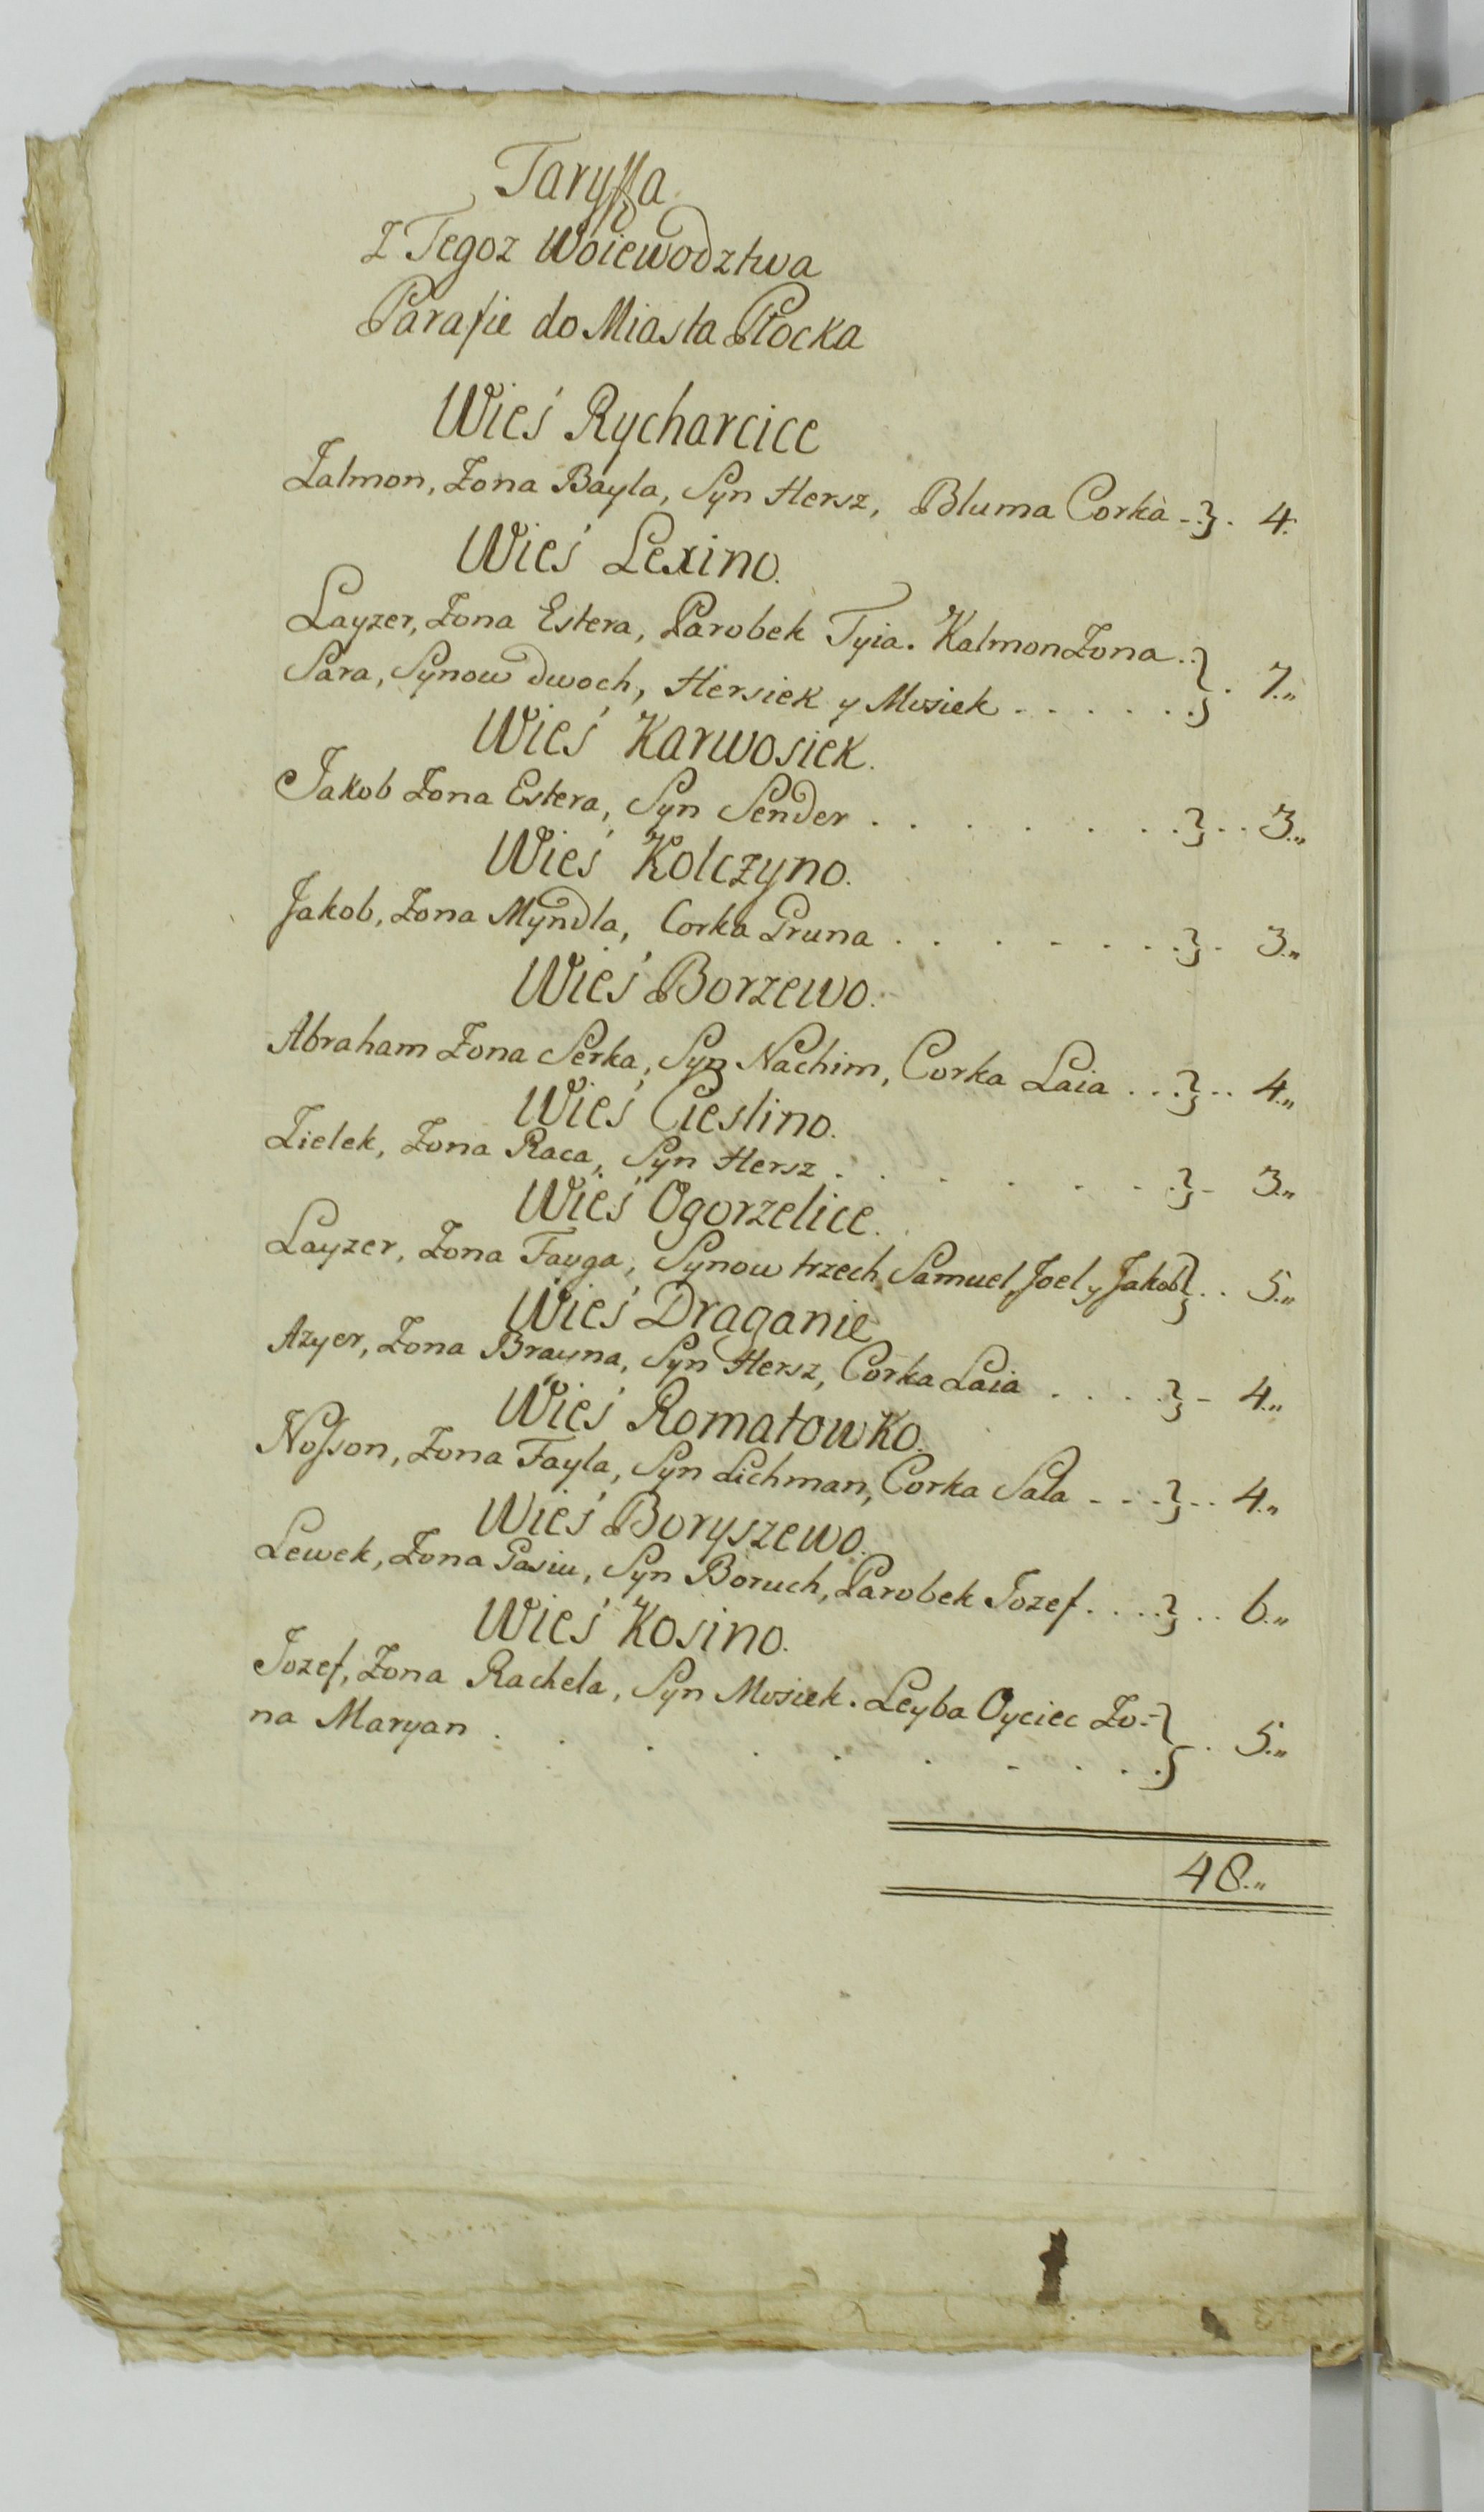 Taryffa
Z Tegoz Woiewodztwa
Parafie do Miasta Płocka
Wieś Rycharcice
Zalmon, Zona Bayla, Syn Hersz, Bluma Corka - } . 4.
Wieś Lexino.
Layzer, Zona Estera, Parobek Tyia. Kalmon Zona . .
Sara, Synow dwoch, Hersiek y Mosiek . . . . . . } . 7.„
Wieś Karwosiek.
Jakob Zona Estera, Syn Sender . . . . . . . . } . . 3.„
Wieś Kolczyno.
Jakob, Zona Myndla, Corka Pruna . . . - . - . . } . 3.„
Wieś Borzewo.
Abraham Zona Serka, Syn Nachim, Corka Laia . . . } . . 4.„
Wieś Cieslino.
Zielek, Zona Raca, Syn Hersz . . . . . - . } - 3.„
Wieś Ogorzelice.
Layzer, Zona Fayga, Synow trzech Samuel, Joel y Jakob } . . 5.„
Wieś Draganie
Azyer, Zona Brayna, Syn Hersz, Corka Laia . . . . . } - 4.„
Wieś Romatowko.
Nosson, Zona Fayla, Syn Lichman, Corka Sala - - . } . . 4.„
Wieś Boryszewo.
Lewek, Zona Pasiu, Syn Boruch, Parobek Jozef . . . . } . . 6.„
Wieś Kosino.
Jozef, Zona Rachela, Syn Mosiek. Leyba Oyciec Zo-
na Maryan . . . . . - . . . } . 5.„
48.„